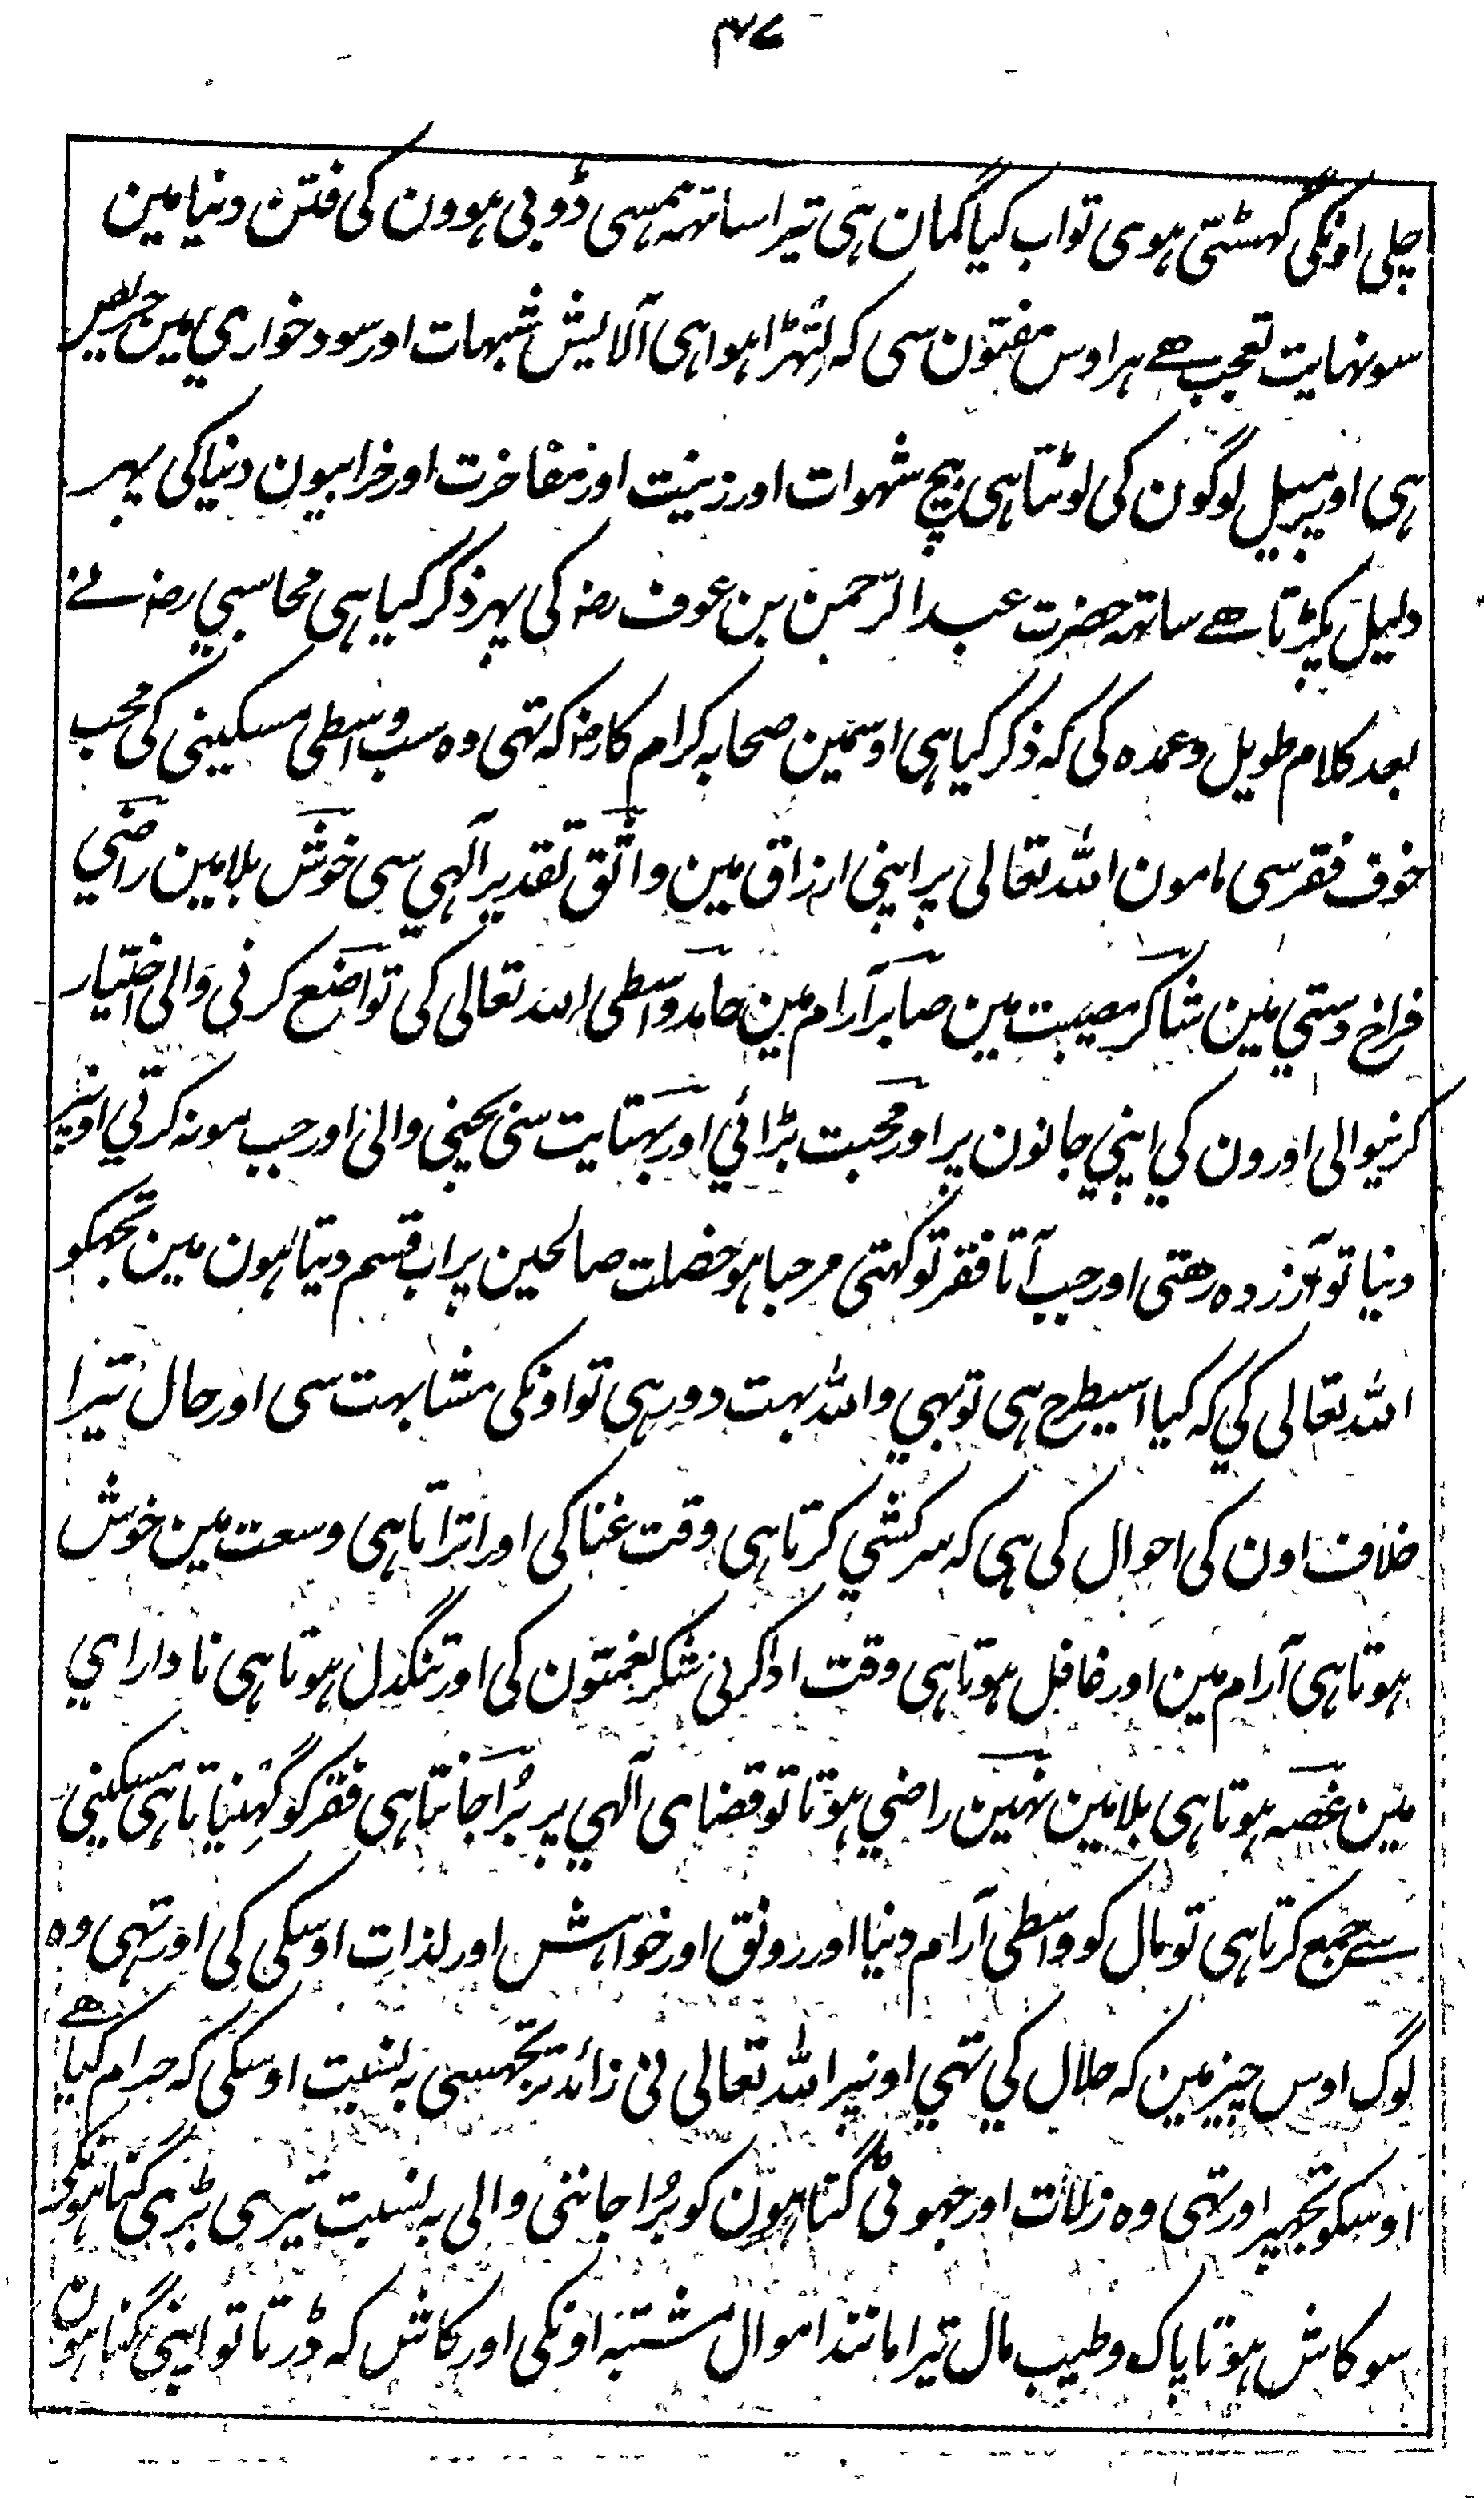 ۴۷
چلی اونکی گہسٹتی ہوی تو اب کیا گمان ہی تیرا ساتہہ ہمسی ڈوبی ہوون کی فتن دنیا مین
سو نہایت تعجب ھے ہر اوس مفتون سی کہ لتہڑا ہوا ہی آلایش شبہات اور سود خواری مین حریص
ہی اوپر میل لوگون کی لوٹتا ہی بیچ شہوات اور زینت اور مفاخرت اور خرابیون دنیا کی پہر
دلیل پکڑتا ھے ساتہہ حضرت عبد الرّحمن بن عوف رضہ کی پہر ذکر کیا ہی محاسبی رضہ نے
بعد کلام طویل و عمدہ کی کہ ذکر کیا ہی اوسمین صحابہ کرام کا رضہ کہ تہی وہ سب واسطی مسکینی کی محب
خوف فقر سی مامون اللہ تعالی پر اپنی ارزاق مین واثق تقدیر آلہی سی خوش بلا مین راضی
فراخ دستی مین شاکر مصیبت مین صابر آرام مین حامد واسطی اللہ تعالی کی تواضع کرنی والی اختیار
کرنیوالی اورون کی اپنی جانون پر اور محبت بڑائی اور بہتایت سی بچنی والی اور جب مونہ کرتی اونپر
دنیا تو آزردہ رھتی اور جب آتا فقر تو کہتی مرحبا ہو خصلت صالحین پر اب قسم دیتا ہون مین تجہکو
اللہ تعالی کی کہ کیا اسیطرح ہی تو بہی واللہ بہت دور ہی تو اونکی مشابہت سی اور حال تیرا
خلاف اون کی احوال کی ہی کہ سرکشی کرتا ہی وقت غنا کی اور اتراتا ہی وسعت مین خوش
ہوتا ہی آرام مین اور غافل ہوتا ہی وقت ادا کرنی شکر نعمتون کی اور تنگدل ہوتا ہی نادارا ہی
مین غصہ ہوتا ہی بلا مین نہین راضی ہوتا تو قضای آلہی پر بُرا جانتا ہی فقر کو گہنیاتا ہی مسکینی
سے جمع کرتا ہی تو مال کو واسطی آرام دنیا اور رونق اور خواہش اور لذات اوسکی کی اور تہی وہ
لوگ اوس چیز مین کہ حلال کی تہی اونپر اللہ تعالی نی زائد تر تجہسی بہ نسبت اوسکی کہ حرام کیا ھے
اوسکو تجہپر اور تہی وہ زلات اور جہوٹی گناہون کو بُرا جاننی والی بہ نسبت تیری بڑی گناہونکی
سو کاش ہوتا پاک و طیب مال تیرا مانند اموال مشتبہ اونکی اور کاش کہ ڈرتا تو اپنی گناہون